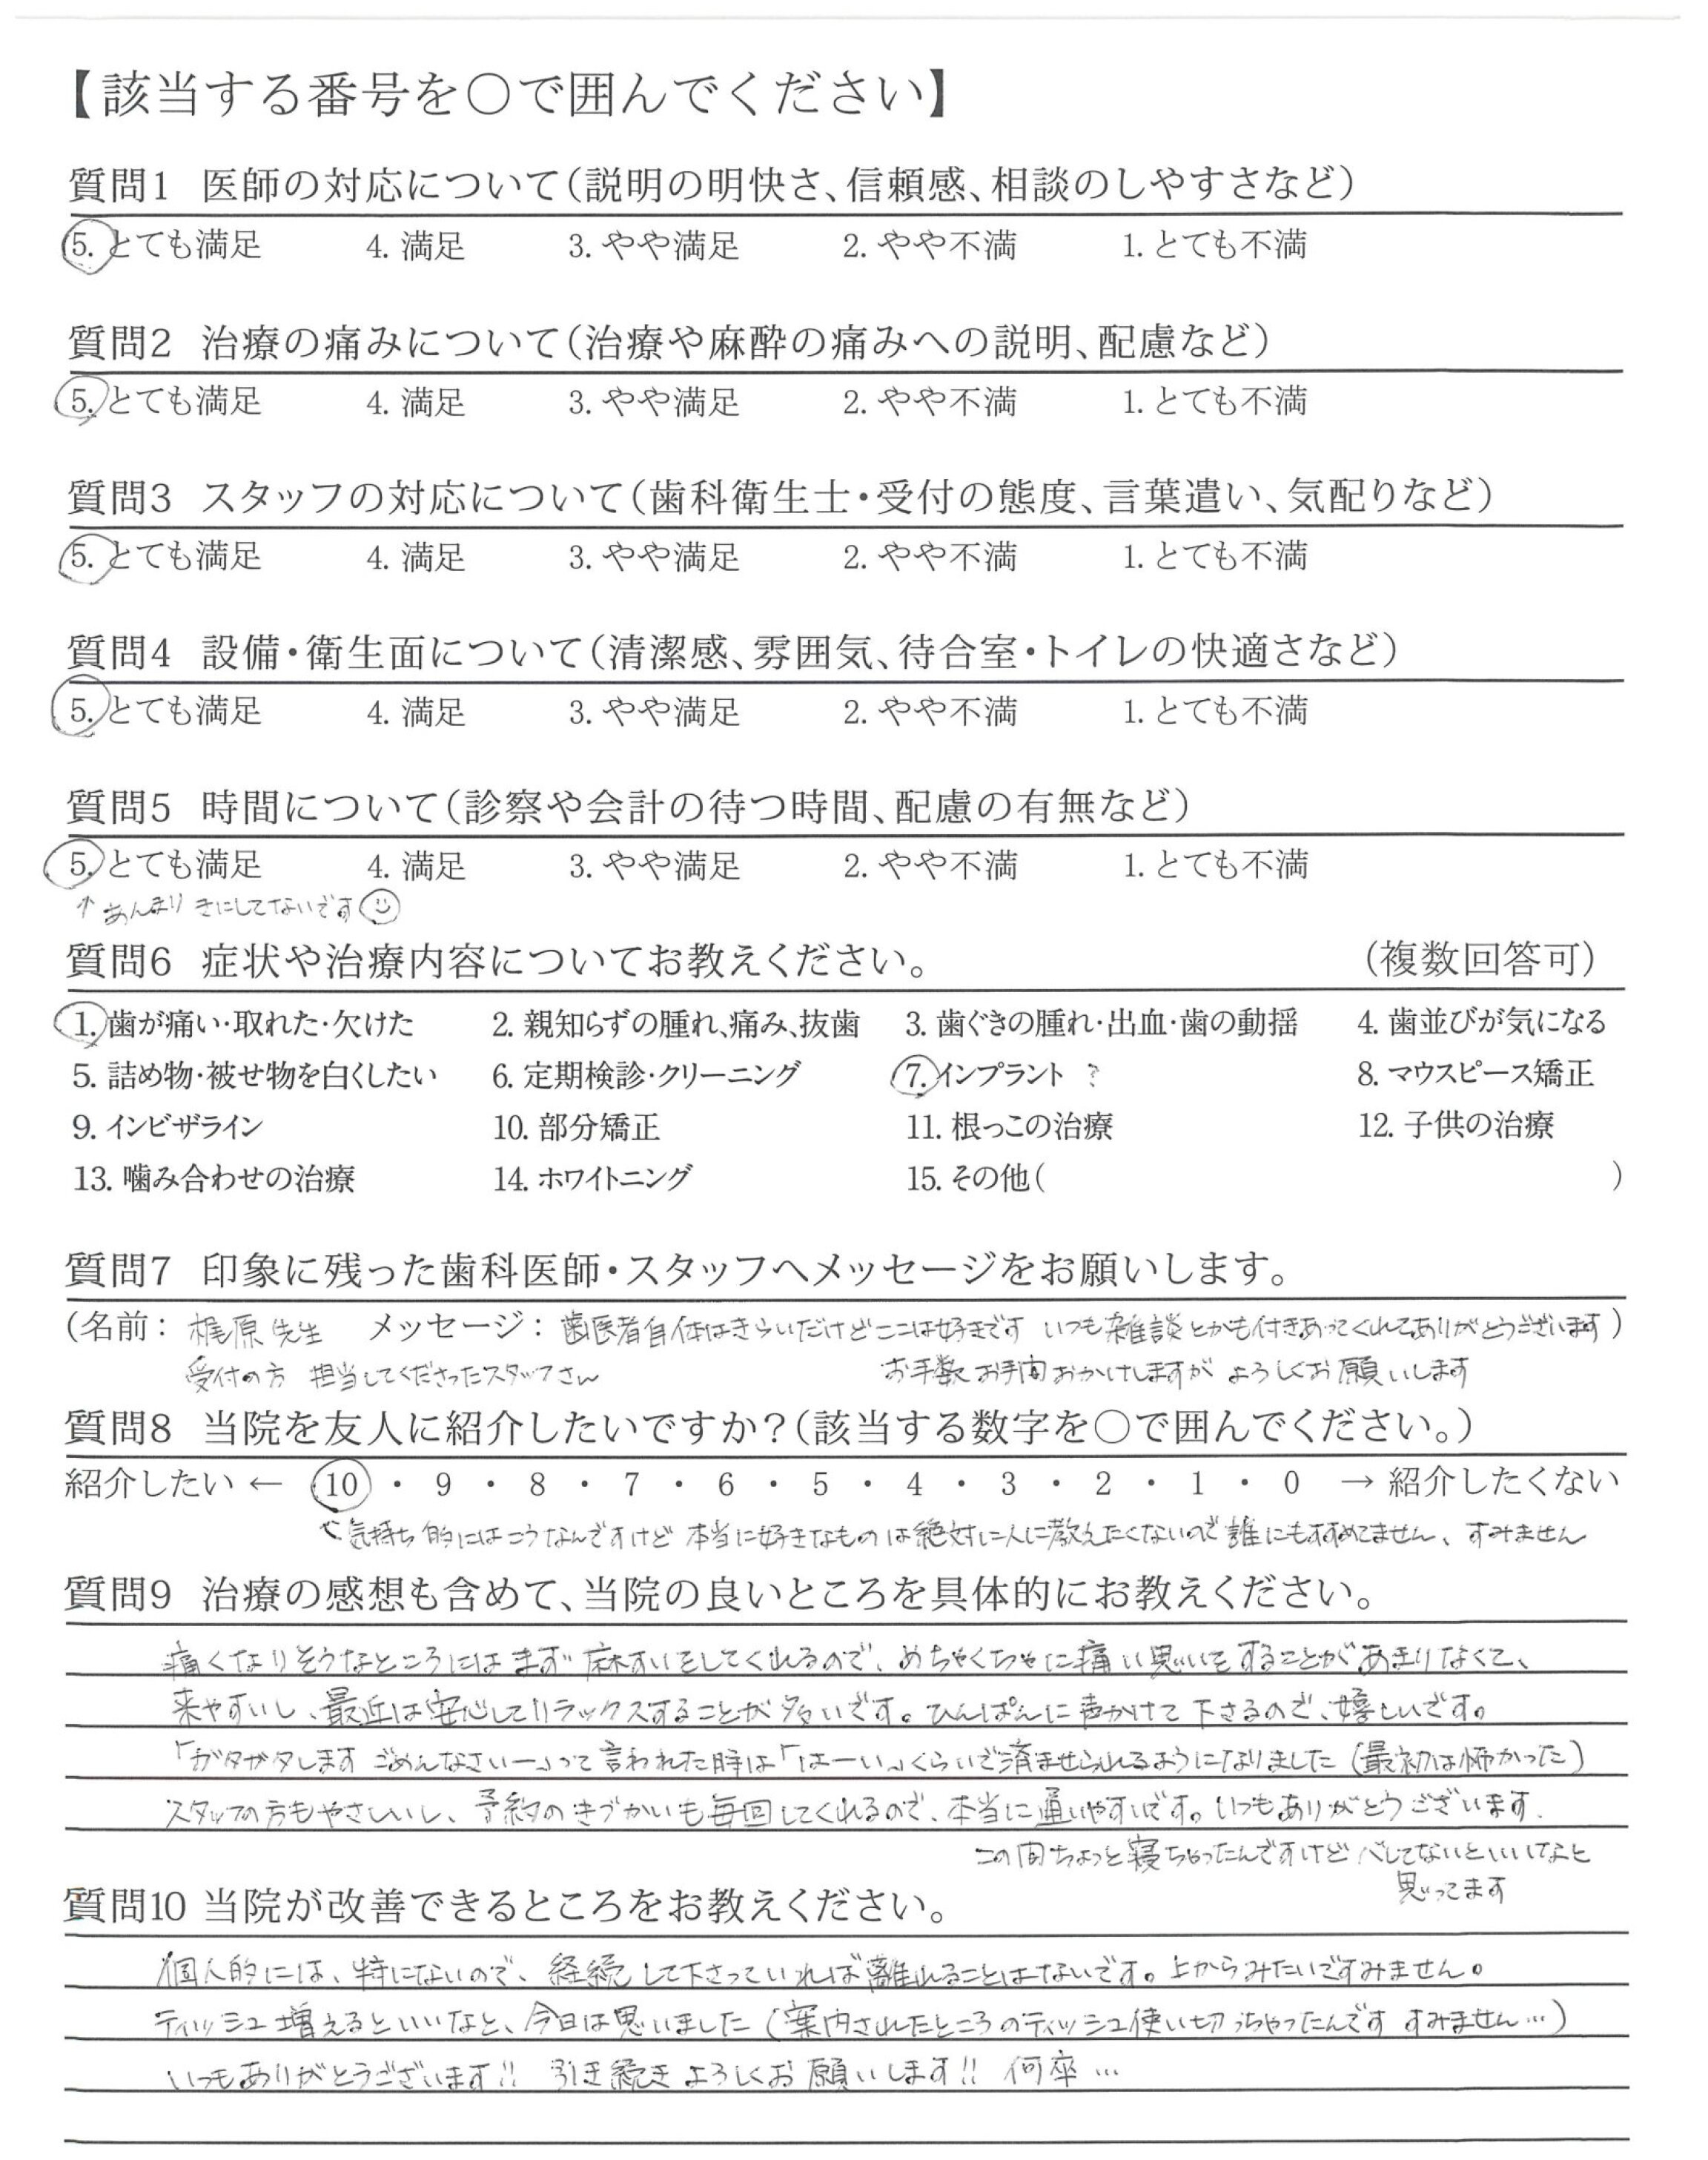 【該当する番号を○で囲んでください】
質問1 医師の対応について(説明の明快さ、信頼感、相談のしやすさなど)
5. とても満足 4. 満足 3. やや満足 2. やや不満 1. とても不満
質問2 治療の痛みについて(治療や麻酔の痛みへの説明、配慮など)
5. とても満足 4. 満足 3. やや満足 2. やや不満 1. とても不満
質問3 スタッフの対応について(歯科衛生士・受付の態度、言葉遣い、気配りなど)
5. とても満足 4. 満足 3. やや満足 2. やや不満 1. とても不満
質問4 設備・衛生面について(清潔感、雰囲気、待合室・トイレの快適さなど)
5. とても満足 4. 満足 3. やや満足 2. やや不満 1. とても不満
質問5 時間について(診察や会計の待つ時間、配慮の有無など)
5. とても満足 4. 満足 3. やや満足 2. やや不満 1. とても不満
↑ あんまり きにしてないです
質問6 症状や治療内容についてお教えください。 (複数回答可)
1. 歯が痛い・取れた・欠けた 2. 親知らずの腫れ、痛み、抜歯 3. 歯ぐきの腫れ・出血・歯の動揺 4. 歯並びが気になる
5. 詰め物・被せ物を白くしたい 6. 定期検診・クリーニング 7. インプラント ? 8. マウスピース矯正
9. インビザライン 10. 部分矯正 11. 根っこの治療 12. 子供の治療
13. 噛み合わせの治療 14. ホワイトニング 15. その他( )
質問7 印象に残った歯科医師・スタッフへメッセージをお願いします。
(名前: 梶原先生 メッセージ: 歯医者自体はきらいだけどここは好きです いつも雑談とかも付きあってくれてありがとうございます)
受付の方 担当してくださったスタッフさん お手数お手間おかけしますが よろしくお願いします
質問8 当院を友人に紹介したいですか?(該当する数字を○で囲んでください。)
紹介したい ← 10 ・ 9 ・ 8 ・ 7 ・ 6 ・ 5 ・ 4 ・ 3 ・ 2 ・ 1 ・ 0 → 紹介したくない
気持ち的にはこうなんですけど 本当に好きなものは絶対に人に教えたくないので 誰にもすすめてません、すみません
質問9 治療の感想も含めて、当院の良いところを具体的にお教えください。
痛くなりそうなところにはまず麻すいをしてくれるので、めちゃくちゃに痛い思いをすることがあまりなくて、
来やすいし、最近は安心してリラックスすることが多いです。ひんぱんに声かけて下さるので、嬉しいです。
「ガタガタします ごめんなさいー」って言われた時は「はーい」くらいで済ませられるようになりました(最初は怖かった)
スタッフの方もやさしいし、予約のきづかいも毎回してくれるので、本当に通いやすいです。いつもありがとうございます。
この間ちょっと寝ちゃったんですけど バレてないといいなと
思ってます
質問10 当院が改善できるところをお教えください。
個人的には、特にないので、経続して下さっていれば離れることはないです。上からみたいですみません。
ティッシュ増えるといいなと、今日は思いました(案内されたところのティッシュ使い切っちゃったんです すみません…)
いつもありがとうございます!! 引き続きよろしくお願いします!! 何卒…